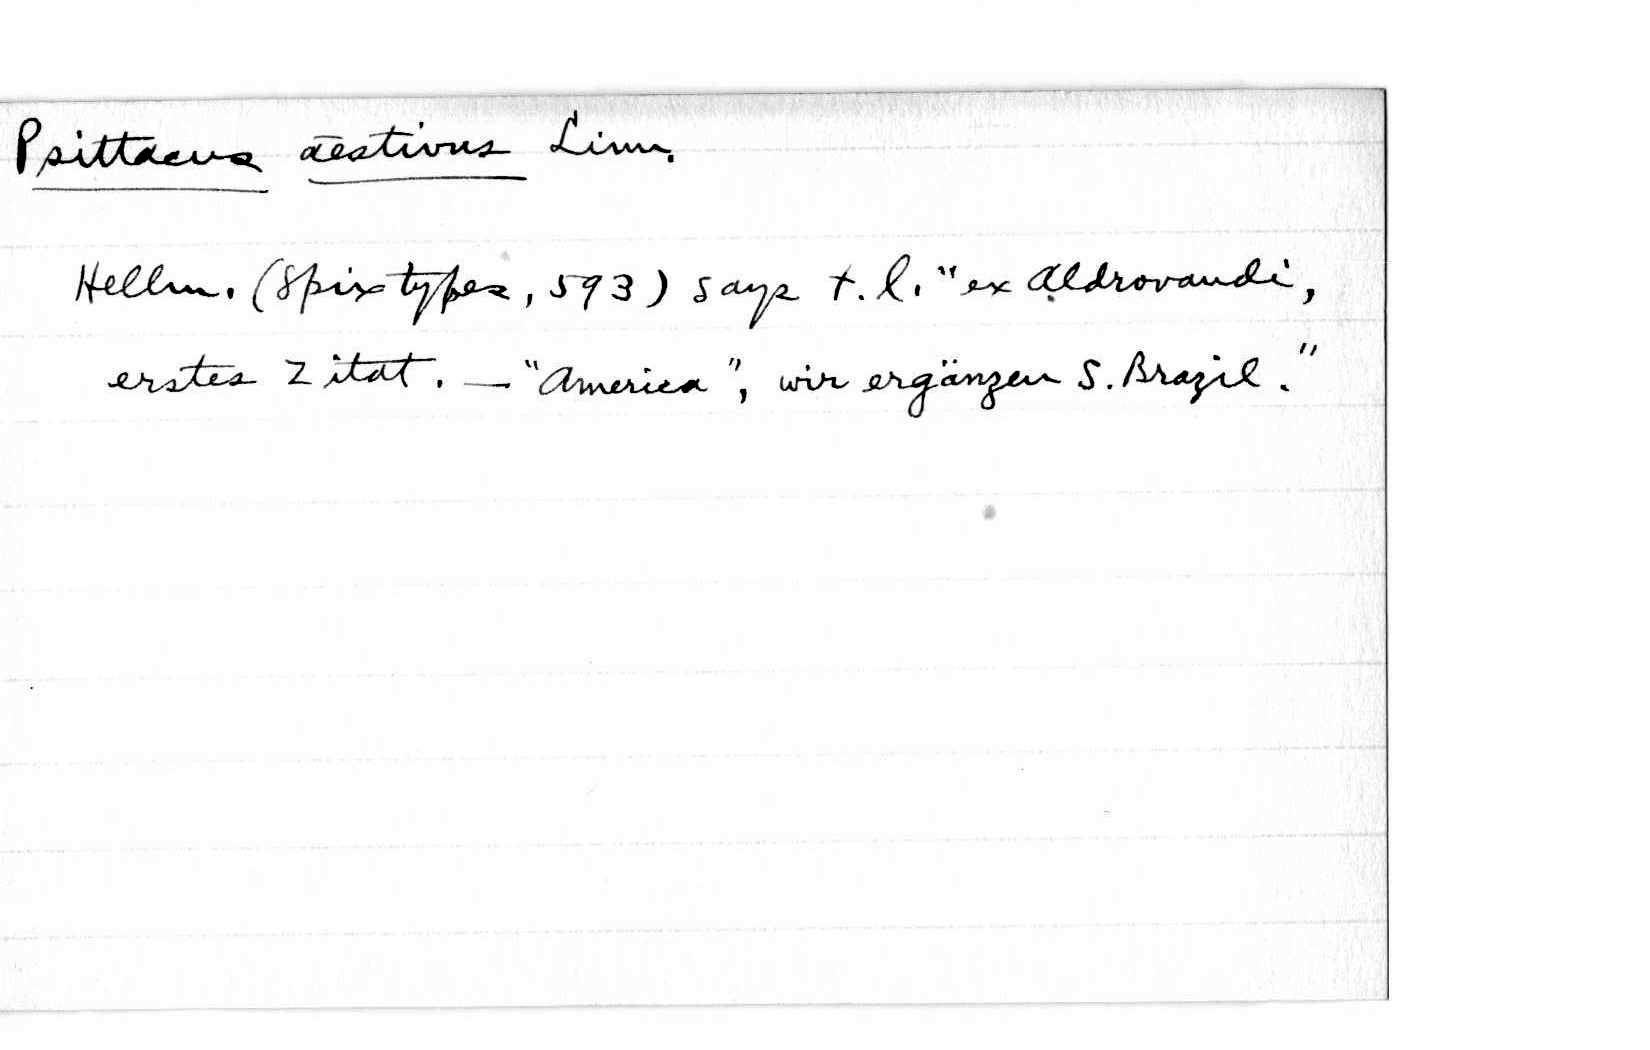 Psittacus aestivus Linn.
Hellm. (Spix types, 593) says t.l. "ex Aldrovandi,
erstes Zitat. — "America", wir ergänzen S. Brazil."